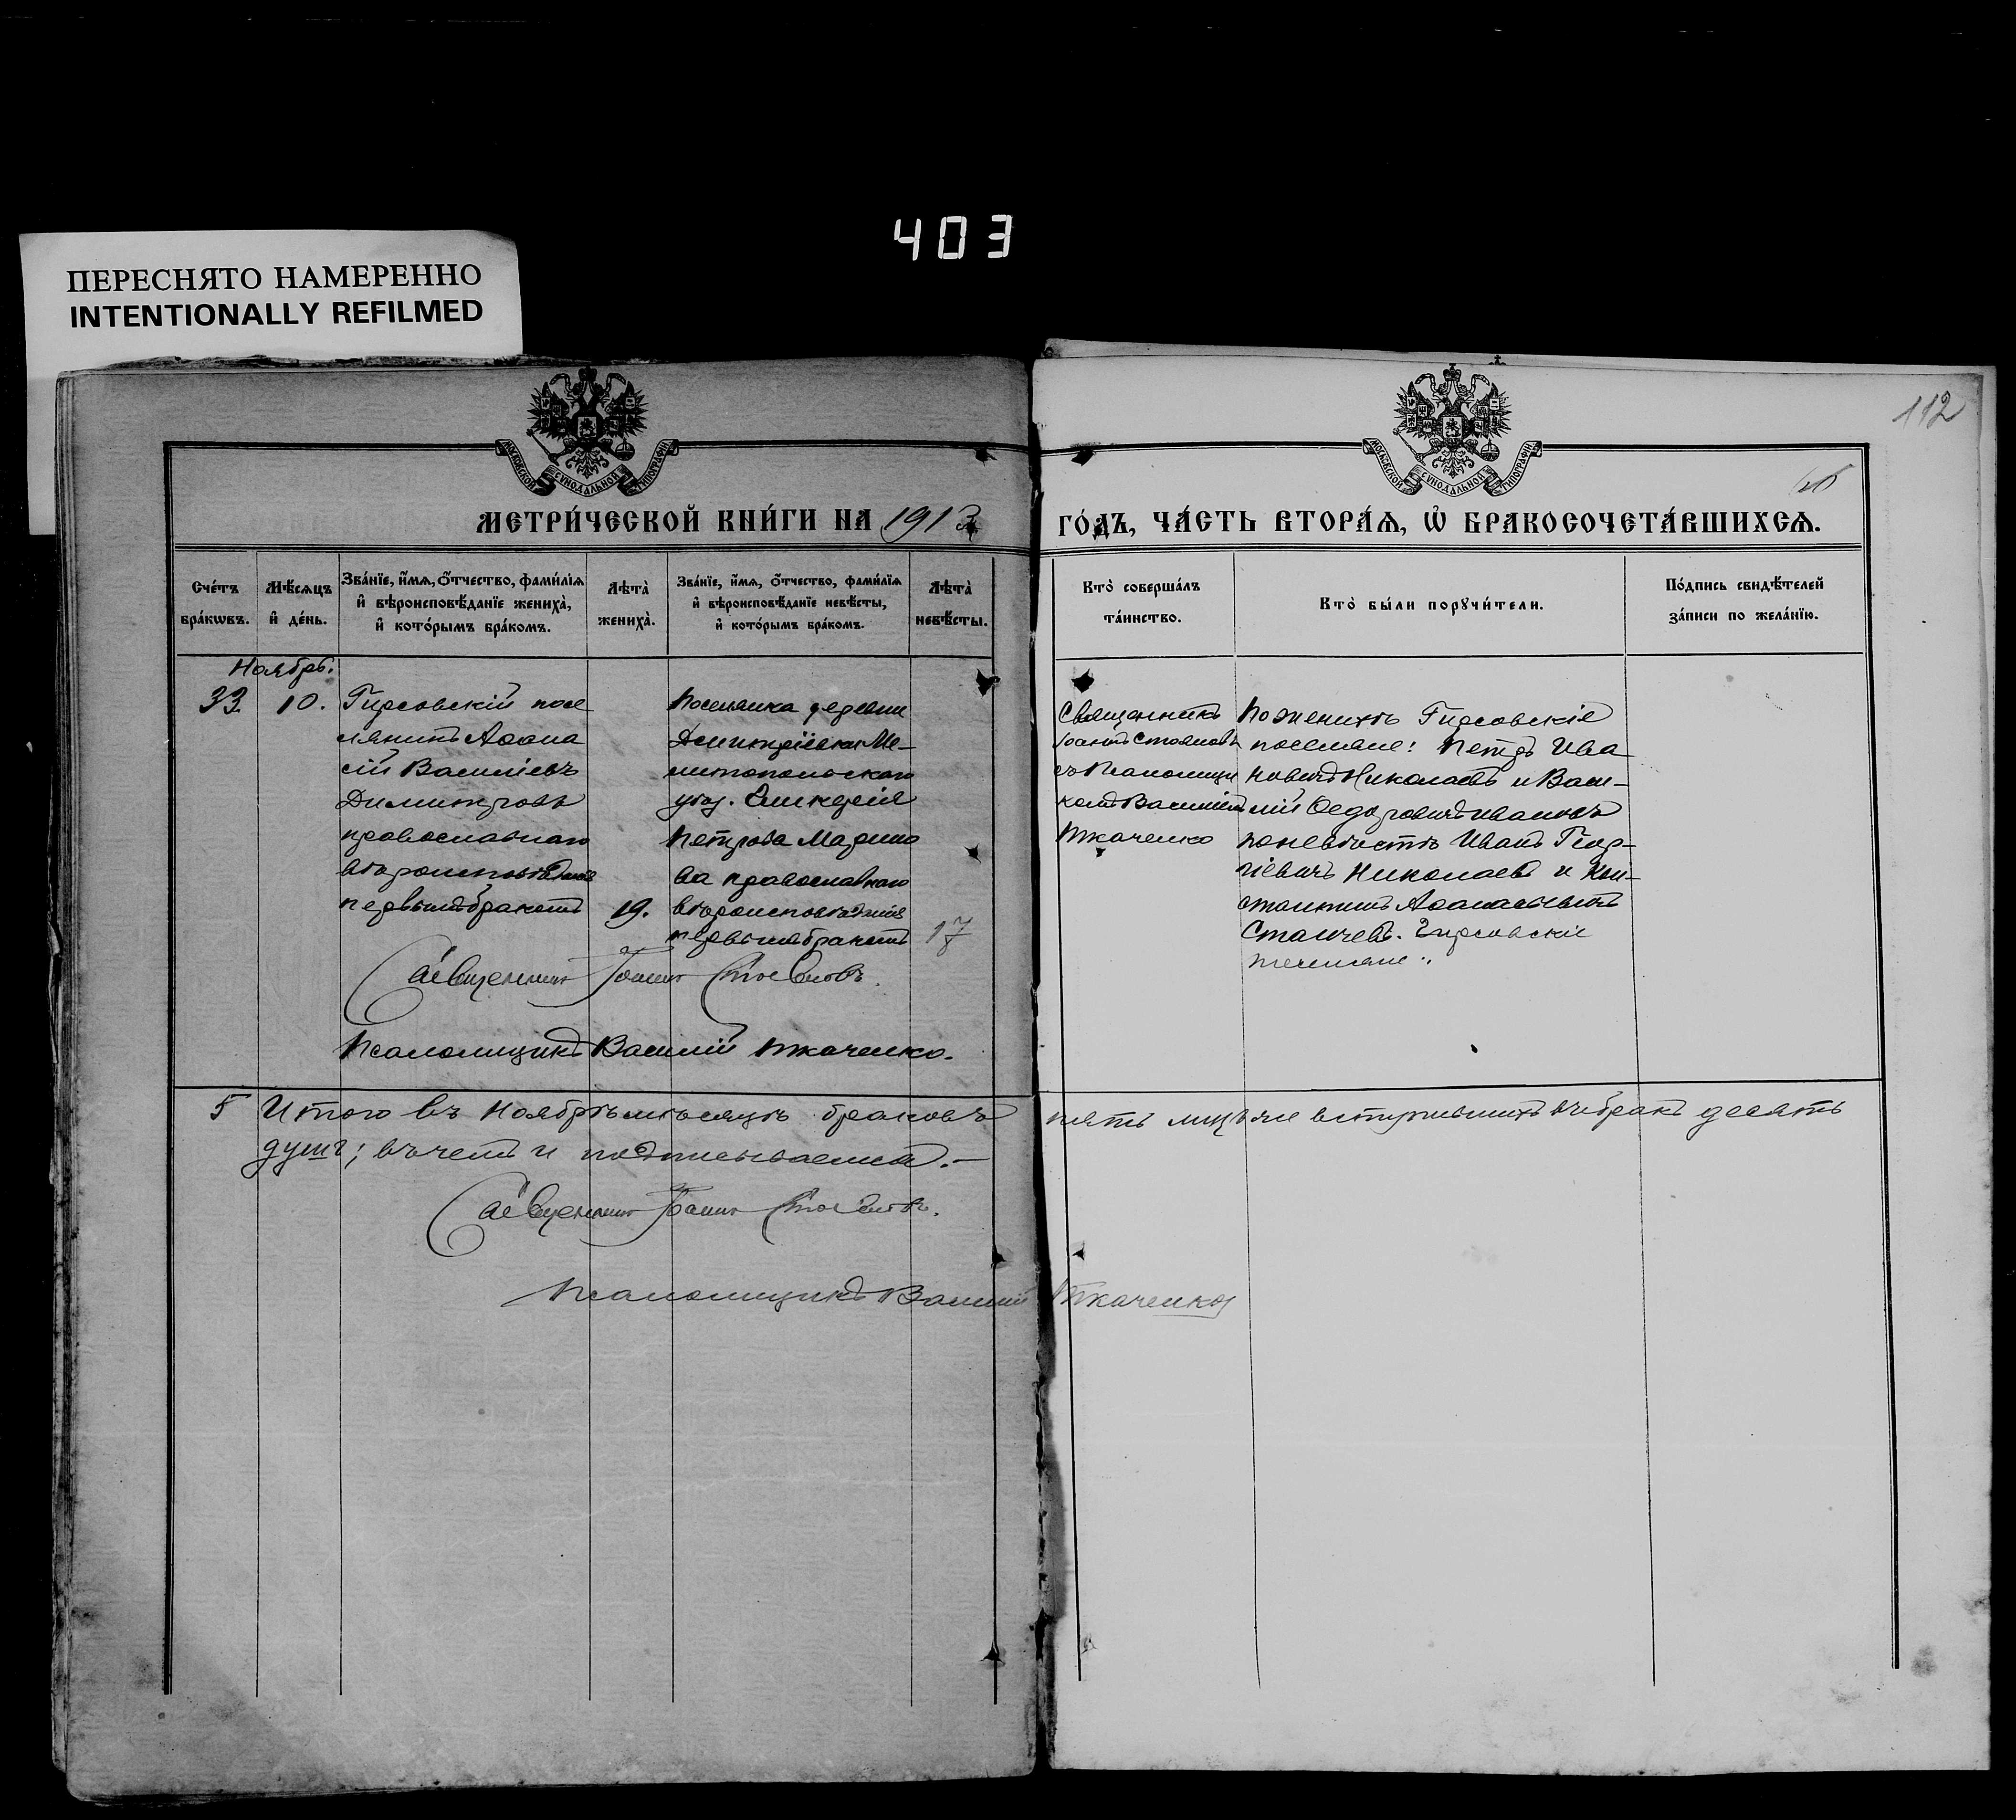 403
ПЕРЕСНЯТО НАМЕРЕННО
INTENTIONALLY REFILMED
112
МОСКОВСКОЙ СѴНОДАЛЬНОЙ ТИПОГРАФІИ
МОСКОВСКОЙ СѴНОДАЛЬНОЙ ТИПОГРАФІИ
МЕТРИ́ЧЕСКОЙ КНИ́ГИ НА 1913
ГО́ДЪ, ЧА́СТЬ ВТОРА́Ѧ, Ѡ҆ БРАКОСОЧЕТА́ВШИХСѦ.
Сче́тъ бра́кѡвъ.
Мѣ́сѧцъ и҆ де́нь.
Зва́нїе, и҆́мѧ, ѻ҆́тчество, фами́лїѧ и҆ вѣроисповѣ́данїе жениха̀, и҆ кото́рымъ бра́комъ.
Лѣта̀ жениха̀.
Зва́нїе, и҆́мѧ, ѻ҆́тчество, фами́лїѧ и҆ вѣроисповѣ́данїе невѣ́сты, и҆ кото́рымъ бра́комъ.
Лѣта̀ невѣ́сты.
Кто̀ соверша́лъ та́инство.
Кто̀ бы́ли порꙋчи́тели.
По́дпись свидѣ́телей за́писи по жела́нїю.
Ноябрь.
33.
10.
Гирсовскій посе
лянинъ Аѳана
сій Василіевъ
Димитровъ
православнаго
вѣроисповѣданія
первымъ бракомъ
19.
Поселянка деревни
Димитріевки Ме-
литопольскаго
уѣз.
Петрова Марино
ва православнаго
вѣроисповѣданія
первымъ бракомъ
17
Священникъ
Іоаннъ Стояновъ
съ Псаломщи
комъ Василіемъ
Ткаченко
По женихѣ Гирсовскіе
поселяне: Петръ Ива
новичъ Николаевъ и Васи-
лій Ѳедоровичъ Ивановъ
по невѣстѣ Иванъ Геор-
гіевичъ Николаевъ и Кон-
стантинъ Аѳанасьевичъ
Станчевъ. Гирсовскіе
поселяне.
Священникъ Іоаннъ Стояновъ.
Псаломщикъ Василій Ткаченко.
5 Итого въ Ноябрѣ мѣсяцѣ браковъ пять лицъ же вступившихъ въ бракъ десять
душъ; въ чемъ и подписываемся.—
Священникъ Іоаннъ Стояновъ.
Псаломщикъ Василій Ткаченко